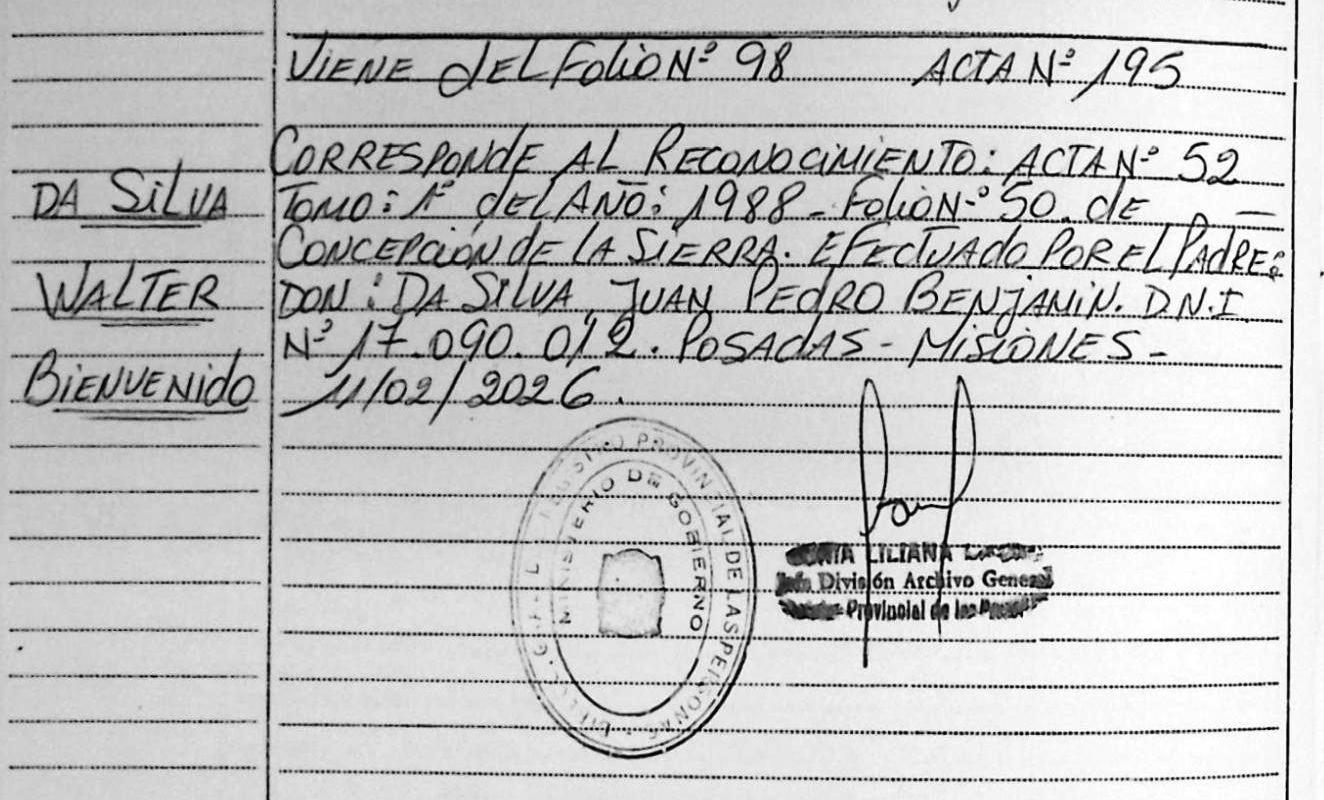 VIENE dEL FoLio Nº 98 ACTA Nº 195
CORRESPONdE AL RECONOCiMiENTO: ACTA Nº 52
DA SiLVA
TOMO: 1º dEL AÑO: 1988 - FoLio Nº 50. dE —
CONCEPCiÓN dE LA SiERRA. EFECTUAdO POR EL PAdRE:
WALTER
DON: DA SiLVA, JUAN PEdRO BENJAMiN. D.N.I
Nº 17.090.012. POSAdAS - MiSiONES -
BiENVENidO
11/02/2026.
REGISTRO PROVINCIAL DE LAS PERSONAS
MINISTERIO DE GOBIERNO
LILIANA
División Archivo General
Provincial de las